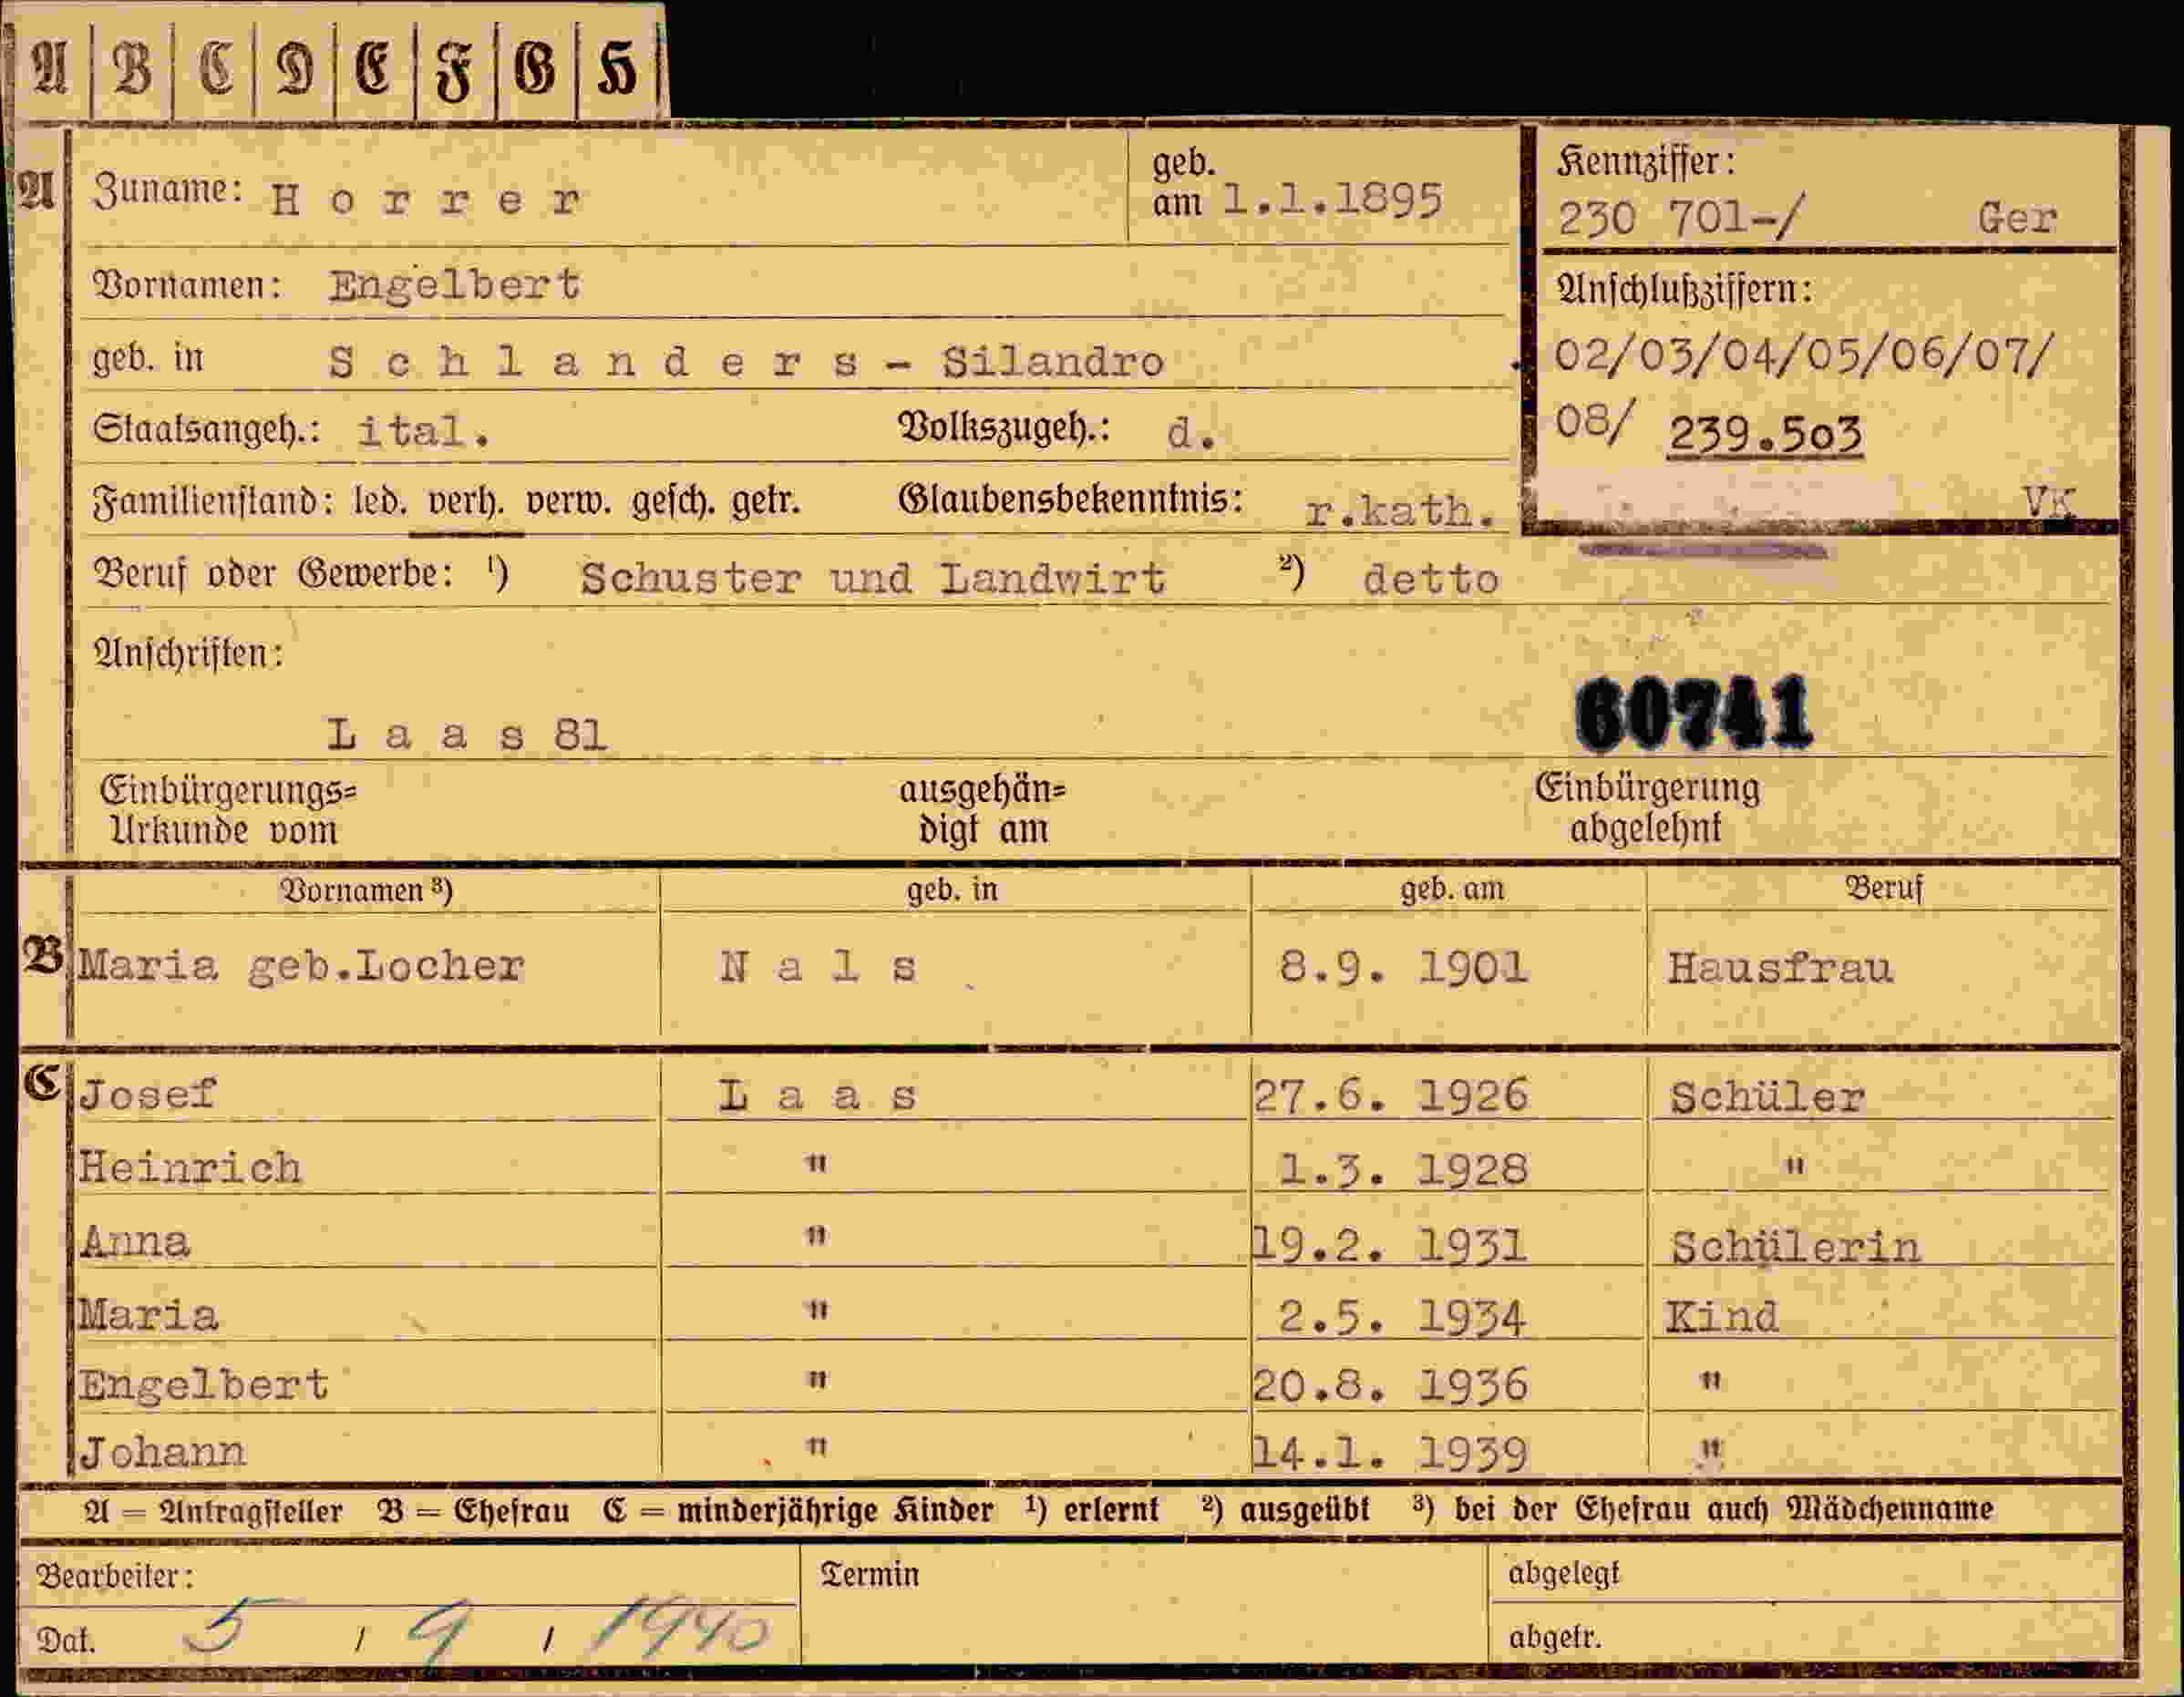 A B C D E F G H
A Zuname: H o r r e r geb. am 1.1.1895
Kennziffer:
230 701-/ Ger
Vornamen: Engelbert
Anschlußziffern:
geb. in S c h l a n d e r s - Silandro
02/03/04/05/06/07/
Staatsangeh.: ital. Volkszugeh.: d.
08/ 239.503
Familienstand: led. verh. verw. gesch. getr. Glaubensbekenntnis: r.kath.
VK
Beruf oder Gewerbe: ¹) Schuster und Landwirt ²) detto
Anschriften:
L a a s 81
60741
Einbürgerungs= ausgehän= Einbürgerung
Urkunde vom digt am abgelehnt
Vornamen ³) geb. in geb. am Beruf
B Maria geb.Locher N a l s 8.9. 1901 Hausfrau
C Josef L a a s 27.6. 1926 Schüler
Heinrich " 1.3. 1928 "
Anna " 19.2. 1931 Schülerin
Maria " 2.5. 1934 Kind
Engelbert " 20.8. 1936 "
Johann " 14.1. 1939 "
A = Antragsteller B = Ehefrau C = minderjährige Kinder ¹) erlernt ²) ausgeübt ³) bei der Ehefrau auch Mädchenname
Bearbeiter: Termin abgelegt
Dat. 5 / 9 / 1940 abgetr.